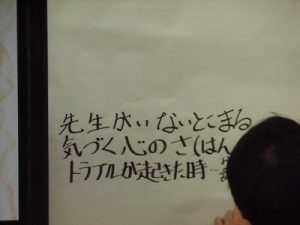 先生がいないとこまる
気づく心のさ(はん
トラブルが起きた時…